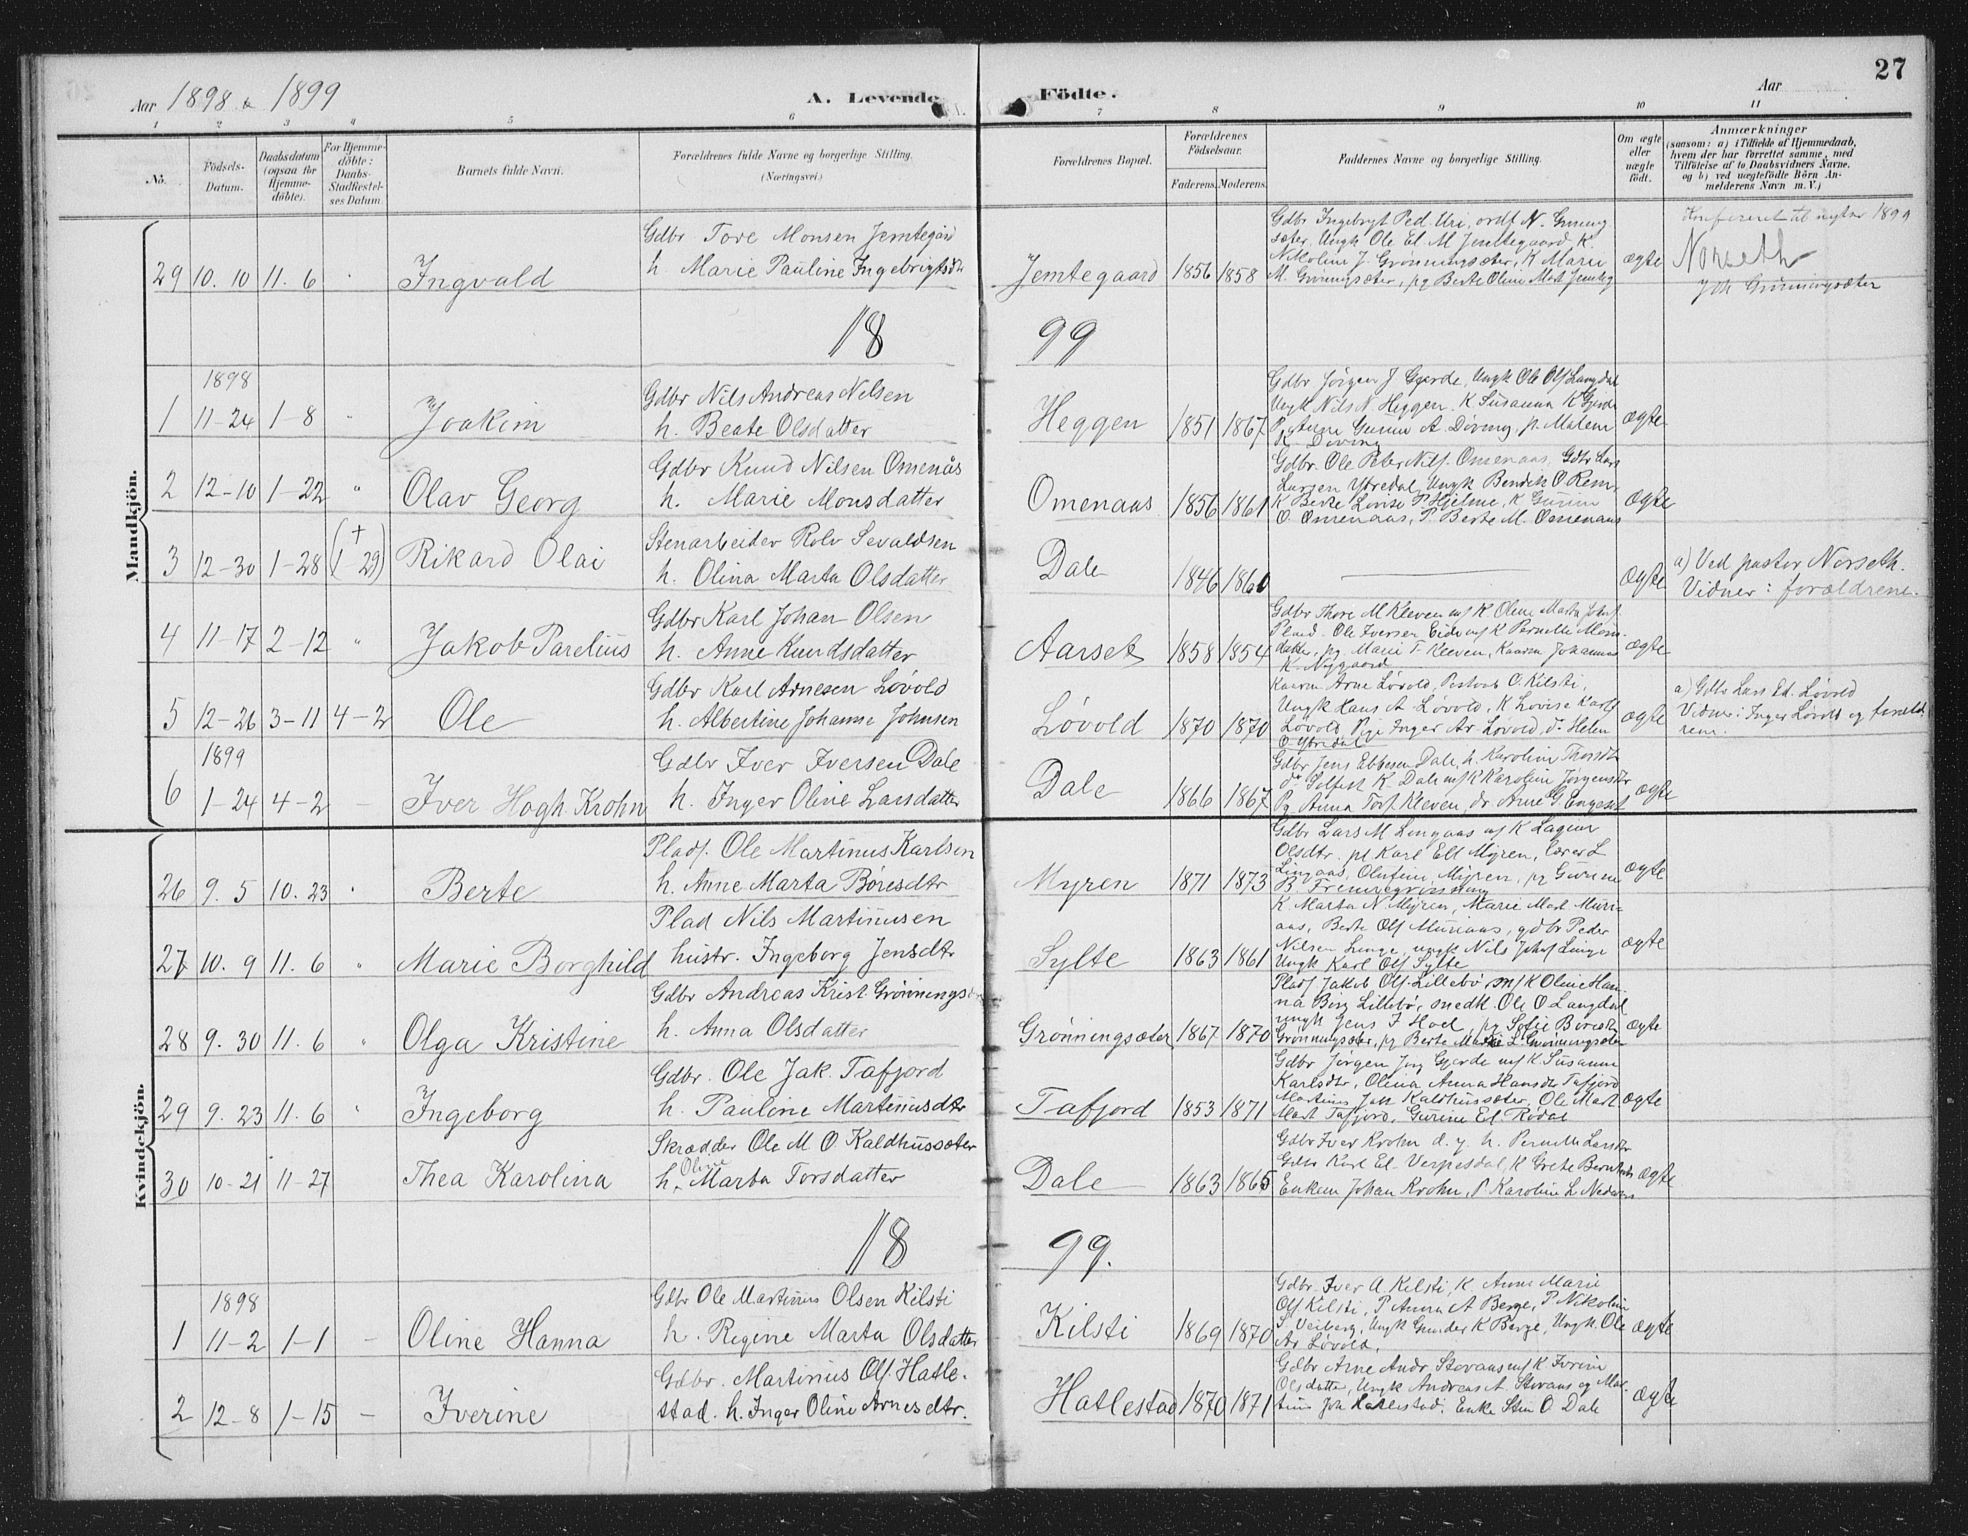 27
Aar 1898 & 1899
A. Levende Födte.
Aar
1 2 3 4 5 6 7 8 9 10 11
No.
Födsels-Datum.
Daabsdatum (ogsaa för Hjemmedöbte).
For Hjemmedöbte: Daabs-Stadfæstelses Datum
Barnets fulde Navn.
Forældrenes fulde Navne og borgerlige Stilling. (Næringsvei.)
Forældrenes Bopæl.
Forældrenes Födselsaar.
Faderens. Moderens.
Faddernes Navne og borgerlige Stilling.
Om ægte eller uægte födt.
Anmærkninger
(saasom: a) i Tilfælde af Hjemmedaab, hvem der har forrettet samme, med Tilföielse af to Daabsvidners Navne, og b) ved uægtefödte Börn Anmelderens Navn m. V.)
Mandkjön.
29 10. 10 11. 6 Ingvald
Gdbr Tore Monsen Jemtegård
h. Marie Pauline Ingebrigtsdtr
Jemtegaard 1856 1858
Gdbr Ingebrigt Ped. Uri, ordf N. Grnning
sæter, Ungk Ole El. M Jemtegaard, K.
Nikoline J. Grønningsæter, K Marie
M. Grønningsæter, pg Berte Oline Mat Jemteg
ægte
Konfereret til nytaar 1899
Norseth
Joh Grønningsæter
18 99
1898
1 11-24 1-8 " Joakim
Gdbr Nils Andreas Nilsen
h. Beate Olsdatter
Heggen 1851 1867
Gdbr Jørgen J Gjerde, Ungk Ole Olf Langdal
Ungk Nils N. Heggen. K Susanna K Gjerde
Gurine A. Døving, p. Malene
K Døving
ægte
2 12-10 1-22 " Olav Georg
Gdbr Knud Nilsen Omenås
h. Marie Monsdatter
Omenaas 1856 1861
Gdbr. Ole Peter Nilf. Omenaas, Gdbr Lars
Larsen Ytredal, Ungk Bendik O Rem,
K Berte Lovise P Hjelme, K Gurine
O. Omenaas, P. Berte M. Omenaas
ægte
3 12-30 1-28 († 1 29) Rikard Olai
Stenarbeider Rolv Sevaldsen
h. Olina Marta Olsdatter
Dale 1846 1860
ægte
a) Ved pastor Norseth.
Vidner: forældrene.
4 11-17 2-12 " Jakob Parelius
Gdbr Karl Johan Olsen
h. Anne Knudsdatter
Aarset 1858 1854
Gdbr Thore M Kleven m/ K Oline Marta Johsf
Plad. Ole Iversen Eide m/ K Pernelle Mons
datter, pg Marie T Kleven, Kaaren Johannes
K. Nygaard
ægte
5 12-26 3-11 4-2 Ole
Gdbr Karl Arnesen Løvold
h. Albertine Johanne Johnsen
Løvold 1870 1870
Arne Løvold, O. Kilsti,
Ungk Hans A Løvold, K Lovise Karlf
Løvold, Pige Inger Ar Løvold, d. Helen
O Ytredal
ægte
a) Gdbr Lars Ed. Løvold
Vidner: Inger Løvold og foræld
rene.
1899
6 1-24 4-2 - Iver Hogh. Krohn
Gdbr Iver Iversen Dale
h. Inger Oline Larsdatter
Dale 1866 1867
Gdbr Jens Ebbesen Dale, h. Karoline Thorsdtr
d° Solfest K. Dale m/ K Karoline Jørgensdtr
Pg Anna Torf. Kleven, dr Arne G Engeset
ægte
Kvindekjön.
26 9. 5 10. 23 Berte
Pladf. Ole Martinus Karlsen
h. Anne Marta Børesdtr
Myren 1871 1873
Gdbr Lars M Lingaas m/ K Lagur
Olsdtr. pl Karl Ell Myren, Lærer L
Lingaas, Olufine Myren, pg Gurine
B Fremregrønning
ægte
27 10. 9 11. 6 " Marie Borghild
Plad Nils Martinusen
hustr. Ingeborg Jensdtr
Sylte 1863 1861
K Marta N Myren, Marie Mart Muri-
aas, Berte Olf Muriaas, gdbr Peder
Nilsen Linge, ungk Nils Johsf Linge
Ungk Karl Olf Sylte
ægte
28 9. 30 11. 6 " Olga Kristine
Gdbr Andreas Krist. Grønningsæ
h. Anna Olsdatter
Grønningsæter 1867 1870
Pladf Jakob Olf. Lillebø, m/ K Oline Han-
na Berg Lillebø, snedk. Ole O Langdal
ungk Jens J Hoel, pg Sofie Børesdtr
Grønningsæter, pg Berte Marie L Grønningsæter
ægte
29 9. 23 11. 6 " Ingeborg
Gdbr. Ole Jak. Tafjord
h. Pauline Martinusdtr
Tafjord 1853 1871
Gdbr Jørgen Jrg Gjerde m/ K Susanne
Karlsdtr, Olina Anna Hansdtr Tafjord
Martinus Jak Kaldhussæter, Ole Mart
Mart Tafjord, Gurine El. Rødal
ægte
30 10-21 11-27 Thea Karolina
Skrædder Ole M O Kaldhussæter
h. Oline Marta Torsdatter
Dale 1863 1865
Gdbr Iver Krohn d. y. h. Pernelle Larsdtr
Gdbr Karl El. Verpesdal, K Grete Berntsdtr
Enkem Johan Krohn, P Karoline L Nedrerø
ægte
18 99.
1898
1 11-2 1-1 - Oline Hanna
Gdbr Ole Martinus Olsen Kilsti
h. Regine Marta Olsdatter
Kilsti 1869 1870
Gdbr. Iver A Kilsti, K. Anne Marie
Olf Kilsti, P Anna A Berge, P Nikoline
S. Veiberg, Ungk Gunder K Berge, Ungk Ole
Ar Løvold.
ægte
2 12-8 1-15 - Iverine
Gdbr. Martinus Olf. Hatle-
stad. h. Inger Oline Arnesdtr.
Hatlestad 1870 1871
Gdbr Arne Andr Storaas m/ K Iverine
Olsdatter, Ungk Andreas A. Storaas og Mar-
tinus Joh Hatlestad, Enke Stin O Dale
ægte